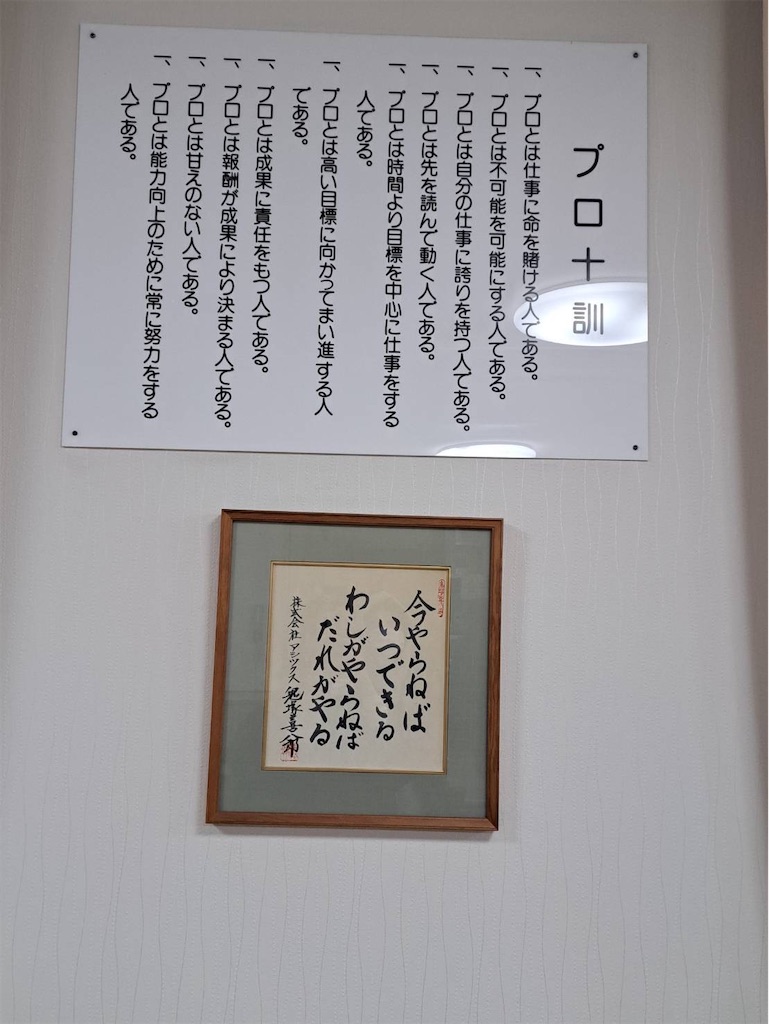 プロ十訓
一、プロとは仕事に命を賭ける人である。
一、プロとは不可能を可能にする人である。
一、プロとは自分の仕事に誇りを持つ人である。
一、プロとは先を読んで動く人である。
一、プロとは時間より目標を中心に仕事をする
人である。
一、プロとは高い目標に向かってまい進する人
である。
一、プロとは成果に責任をもつ人である。
一、プロとは報酬が成果により決まる人である。
一、プロとは甘えのない人である。
一、プロとは能力向上のために常に努力をする
人である。
今やらねば
いつできる
わしがやらねば
だれがやる
株式会社アシックス 鬼塚喜八郎